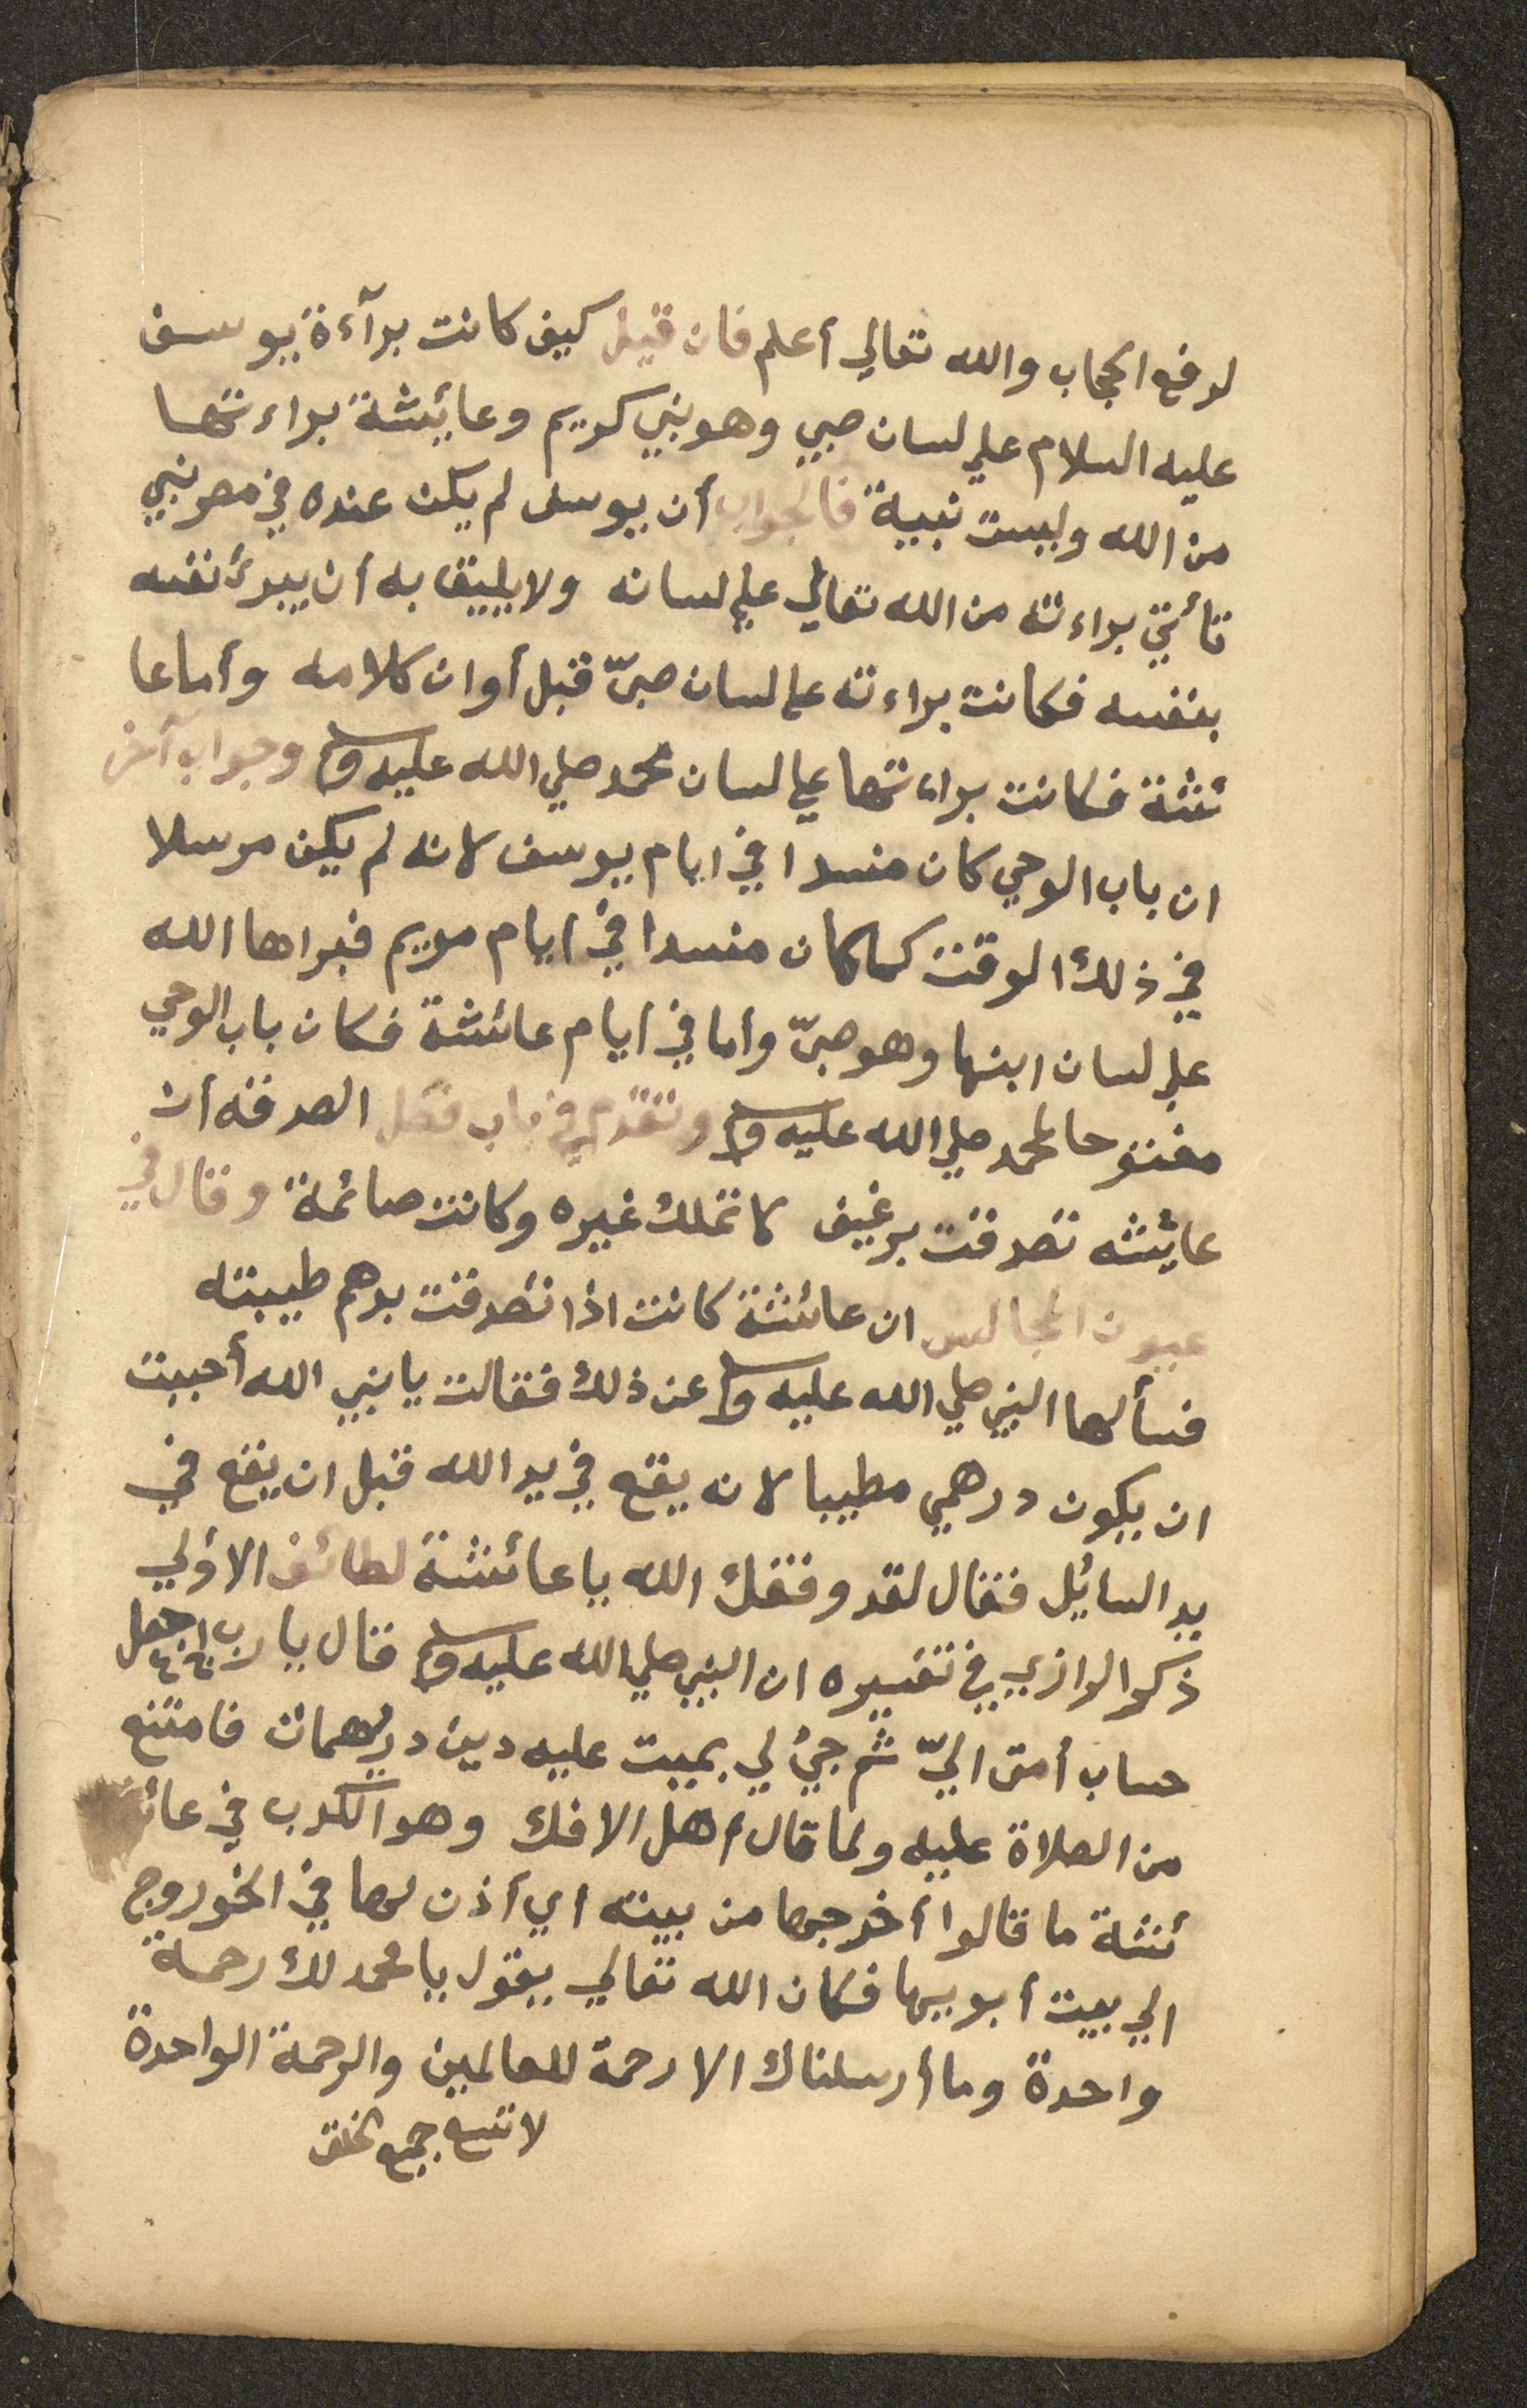 لرفع الحجاب والله تعالي أعلم فان قيل كيف كانت برآءة يوسف
عليه السلام علي لسان صبي وهو نبي كريم وعايئشة براءتها
من الله وليست نبية فالجواب أن يوسف لم يكن عنده في مصر نبي
تأتي براءته من الله تعالي علي لسانه ولا يليق به أن يبرئ نفسه
بنفسه فكانت براءته علي لسان صبيّ قبل أوان كلامه وأما عا
ئشة فكانت براءتها علي لسان محمد صلي الله عليه وسلم وجواب آخر
ان باب الوحي كان منسدا في ايام يوسف لانه لم يكن مرسلا
في ذلك الوقت كما كان منسدا في ايام مريم فبراها الله
علي لسان ابنها وهو صبيّ وأما في ايام عائشة فكان باب الوحي
مفتوحا لمحمد صلي الله عليه وسلم وتقدم في باب فضل الصدقه أن
عايئشه تصدقت برغيف لا تملك غيره وكانت صائمة وقال في
عيون المجالس ان عائشة كانت اذا تصدقت بدهم طيبته
فسألها النبي صلي الله عليه وسلم عن ذلك فقالت يا نبي الله أحببت
ان يكون درهمي مطيبا لانه يقع في يد الله قبل ان يقع في
يد السايئل فقال لقد وفقك الله يا عائشة لطائف الاولي
ذكر الرازي في تفسيره ان النبي صلي الله عليه وسلم قال يا رب اجعل
حساب أمتي اليّ ثم جيء لي بميت عليه دين درهمان فامتنع
من الصلاة عليه ولما قال أهل الافك وهو الكدب في عائ
ئشة ما قالوا أخرجها من بيته اي أذن لها في الخوروج
الي بيت أبويها فكان الله تعالي يقول يا محمد لك رحمة
واحدة وما أرسلناك الا رحمة للعالمين والرحمة الواحدة
لا تسع جميع الخلق